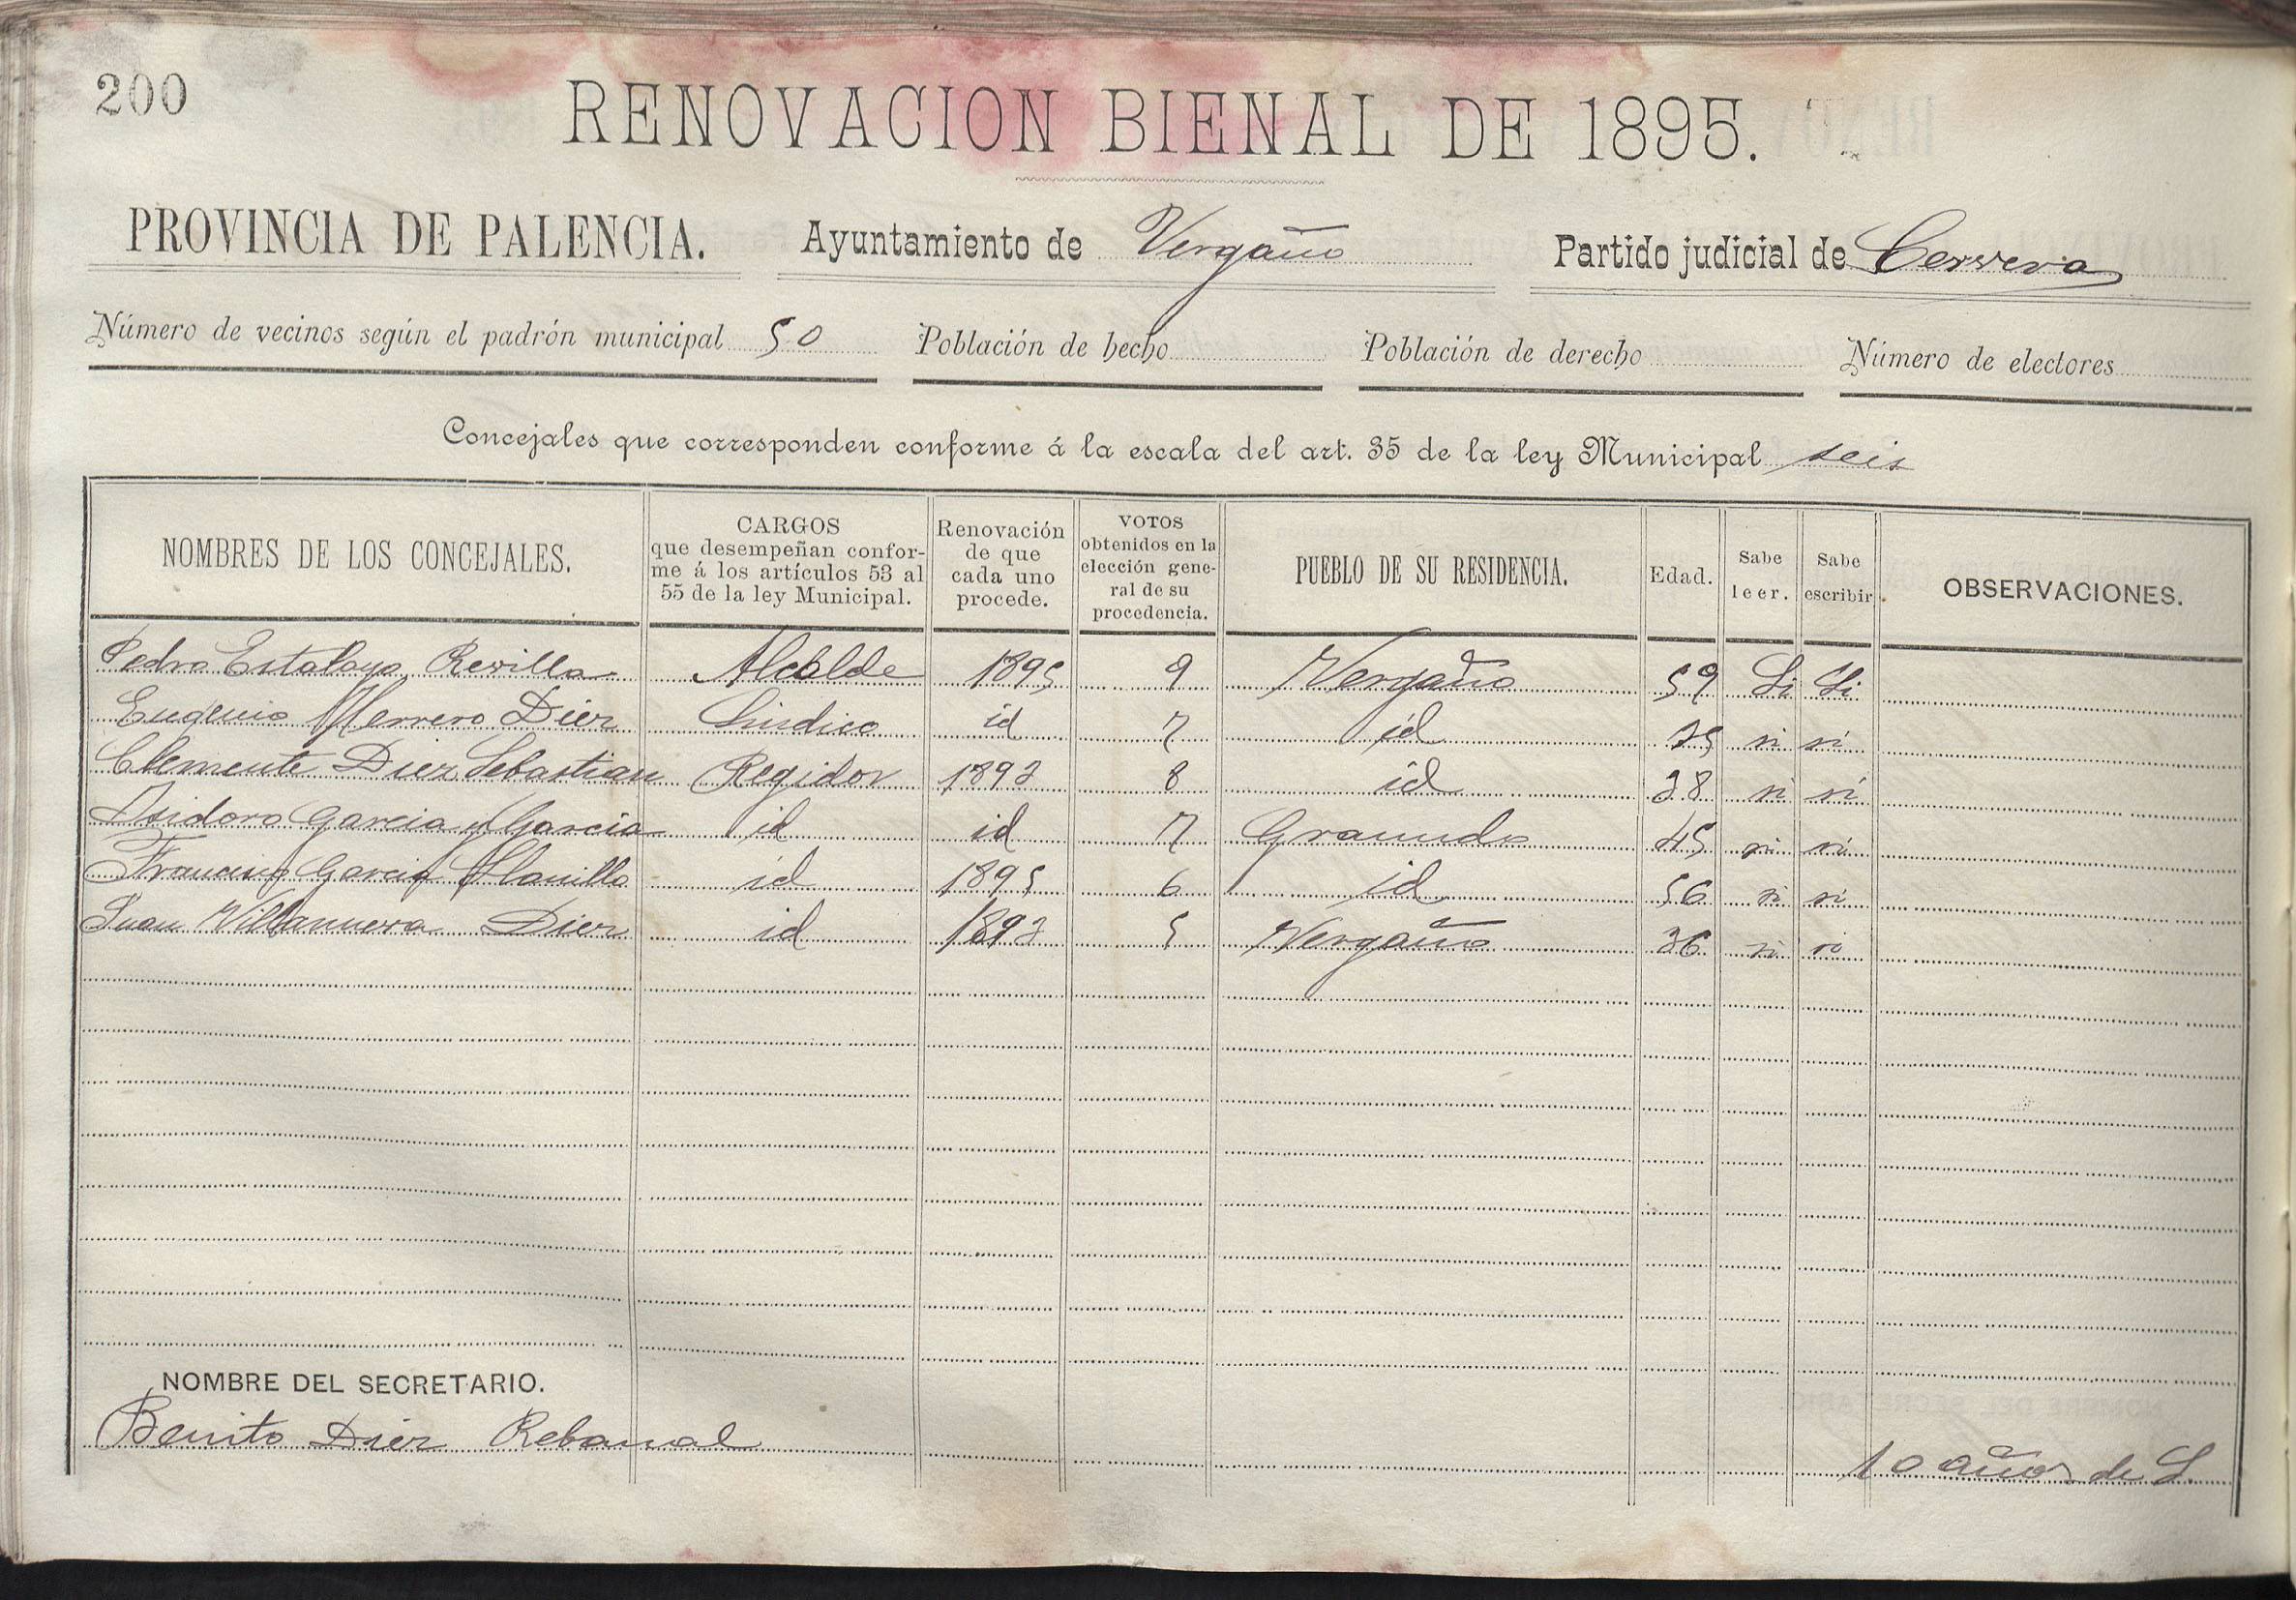 200
RENOVACION BIENAL DE 1895.
PROVINCIA DE PALENCIA. Ayuntamiento de Vergaño Partido judicial de Cervera
Número de vecinos según el padrón municipal 50 Población de hecho Población de derecho Número de electores
Concejales que corresponden conforme á la escala del art. 35 de la ley Municipal seis
NOMBRES DE LOS CONCEJALES.
CARGOS
que desempeñan confor-
me á los artículos 53 al
55 de la ley Municipal.
Renovación
de que
cada uno
procede.
VOTOS
obtenidos en la
elección gene-
ral de su
procedencia.
PUEBLO DE SU RESIDENCIA.
Edad.
Sabe
leer.
Sabe
escribir.
OBSERVACIONES.
Pedro Estalayo Revilla Alcalde 1895 9 Vergaño 59 Si Si
Eugenio Herrero Diez Sindico id 7 id si si
Clemente Diez Sebastian Regidor 1893 8 id 38 si si
Isidoro Garcia y Garcia id id 7 Gramedo 45 si si
Francisco Garcia Llanillo id 1895 6 id 56 si si
Juan Villanueva Diez id 1893 5 Vergaño 36 si si
NOMBRE DEL SECRETARIO.
Benito Diez Rebanal 10 años de S.